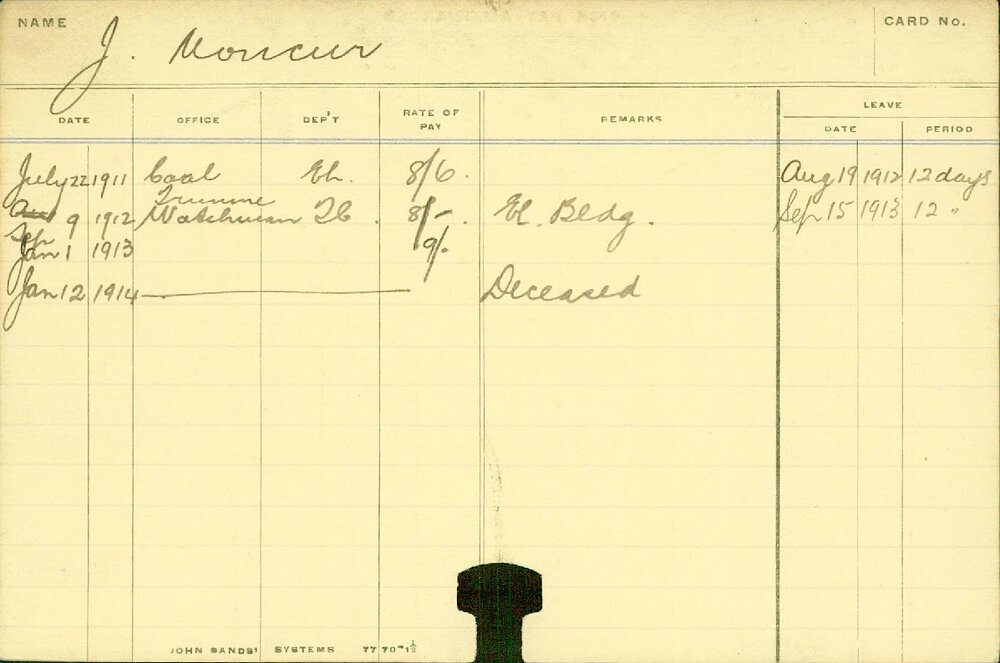 NAME J. Moncur CARD No.
LEAVE
DATE OFFICE DEP'T RATE OF PAY REMARKS DATE PERIOD
July 22 1911 Coal El. 8/6. Aug 19 1912 12 days
Trimmer
Aug 9 1912 Watchman 8/-. El. Bldg. Sep 15 1913 12 "
Sep
Jan 1 1913 9/-
Jan 12 1914 Deceased
JOHN SANDS' SYSTEMS